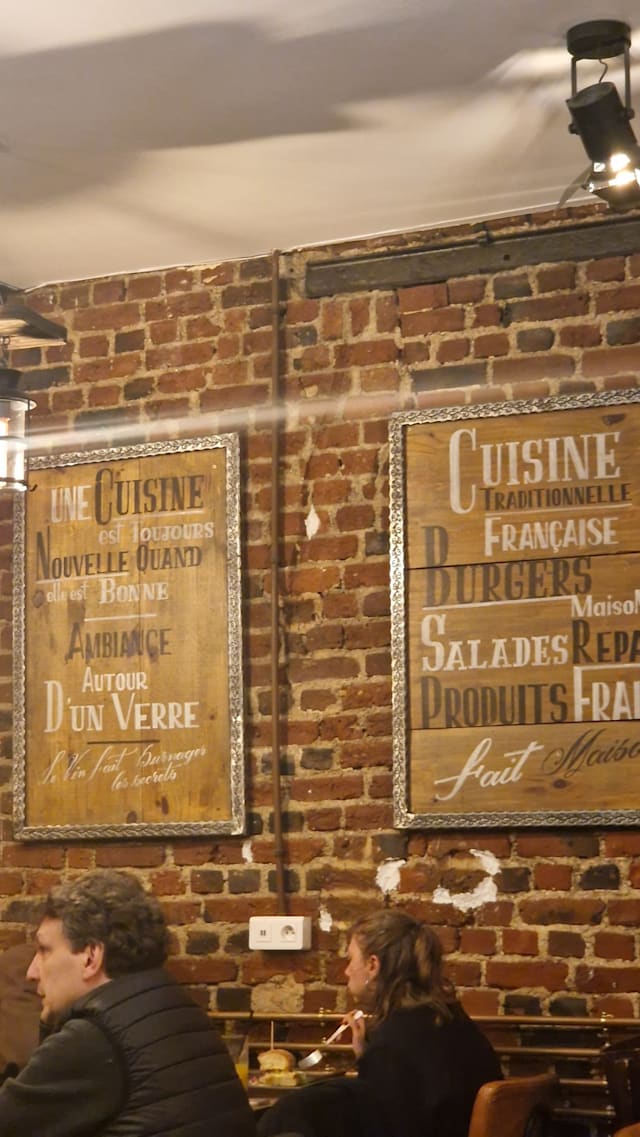 UNE CUISINE
est TOUJOURS
NOUVELLE QUAND
elle est BONNE
AMBIANCE
AUTOUR
D'UN VERRE
Le Vin fait Surnager
les secrets
CUISINE
TRADITIONNELLE
FRANÇAISE
BURGERS
Maison
SALADES REPA
PRODUITS FRAI
Fait Maiso